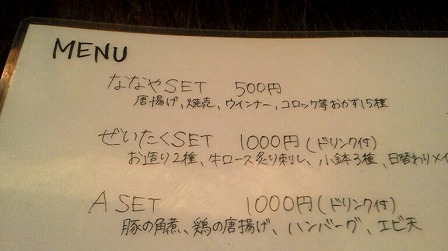 MENU
ななやSET 500円
唐揚げ、焼売、ウインナー、コロッケ等おかず15種
ぜいたくSET 1000円(ドリンク付)
お造り2種、牛ロース炙り刺し、小鉢3種、日替わりメイ
A SET 1000円(ドリンク付)
豚の角煮、鶏の唐揚げ、ハンバーグ、エビ天